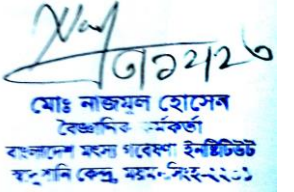 ৩১২১২৩
মোঃ নাজমুল হোসেন
বৈজ্ঞানিক কর্মকর্তা
বাংলাদেশ মৎস্য গবেষণা ইনস্টিটিউট
স্বাদুপানি কেন্দ্র, ময়মনসিংহ-২২০১